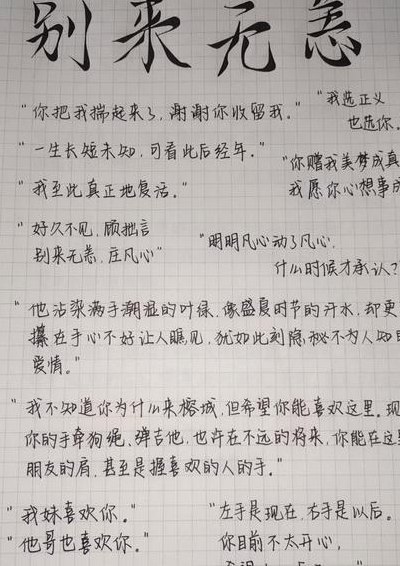 别来无恙
"你把我揣起来了,谢谢你收留我。"
"我选正义
也选你。
"一生长短未知,可看此后经年。"
"你赠我美梦成真
我愿你心想事成
"我至此真正地复活。"
"好久不见,顾拙言
别来无恙,庄凡心"
"明明凡心动了凡心,
什么时候才承认?
"他沾染满手潮湿的叶绿,像盛夏时节的汗水,却更
攥在手心不好让人瞧见,犹如此刻隐秘不为人知
爱情。"
"我不知道你为什么来榕城,但希望你能喜欢这里。现
你的手牵狗绳、弹吉他,也许在不远的将来,你能在这
朋友的肩,甚至是握喜欢的人的手。"
"我妹喜欢你。"
"他哥也喜欢你。"
"左手是现在,右手是以后。
你目前不太开心,